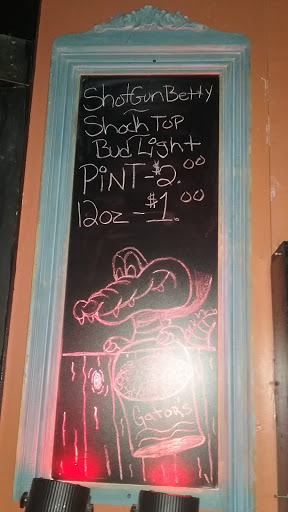 ShotGunBetty
Shock Top
Bud Light
PiNT-$2.00
12oz-$1.00
Gator's